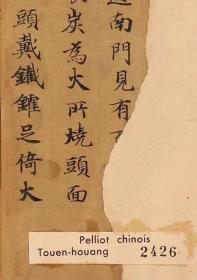 南門見有
炭為火所燒頭面
頭戴鐵鑵足倚火
Pelliot chinois
Touen-houang 2426